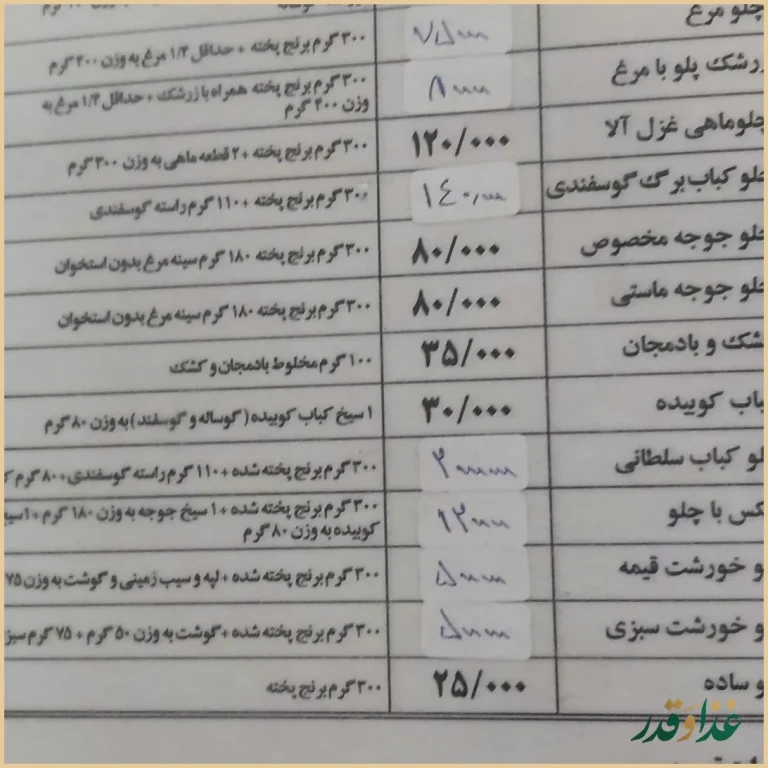 چلو مرغ
۷۵۰۰۰ ۳۰۰ گرم برنج پخته + حداقل ۱/۴ مرغ به وزن ۴۰۰ گرم
زرشک پلو با مرغ ۸۰۰۰۰ ۳۰۰ گرم برنج پخته همراه با زرشک + حداقل ۱/۴ مرغ به
وزن ۴۰۰ گرم
چلوماهی غزل آلا ۱۲۰/۰۰۰ ۳۰۰ گرم برنج پخته + ۲ قطعه ماهی به وزن ۳۰۰ گرم
لو کباب برگ گوسفندی ۱۴۰/۰۰۰ ۳۰۰ گرم برنج پخته + ۱۱۰ گرم راسته گوسفندی
لو جوجه مخصوص ۸۰/۰۰۰ ۳۰۰ گرم برنج پخته ۱۸۰ گرم سینه مرغ بدون استخوان
لو جوجه ماستی ۸۰/۰۰۰ ۳۰۰ گرم برنج پخته ۱۸۰ گرم سینه مرغ بدون استخوان
شک و بادمجان ۳۵/۰۰۰ ۱۰۰ گرم مخلوط بادمجان و کشک
باب کوبیده ۳۰/۰۰۰ ۱ سیخ کباب کوبیده (گوساله و گوسفند) به وزن ۸۰ گرم
لو کباب سلطانی ۳۰۰ گرم برنج پخته شده + ۱۱۰ گرم راسته گوسفندی + ۸۰ گرم
کس با چلو ۳۰۰ گرم برنج پخته شده + ۱ سیخ جوجه به وزن ۱۸۰ گرم + ۱ سیخ
کوبیده به وزن ۸۰ گرم
و خورشت قیمه ۳۰۰ گرم برنج پخته شده + لپه و سیب زمینی و گوشت به وزن ۷۵
و خورشت سبزی ۳۰۰ گرم برنج پخته شده + گوشت به وزن ۵۰ گرم + ۷۵ گرم سبز
و ساده ۲۵/۰۰۰ ۳۰۰ گرم برنج پخته
غذا و قدر